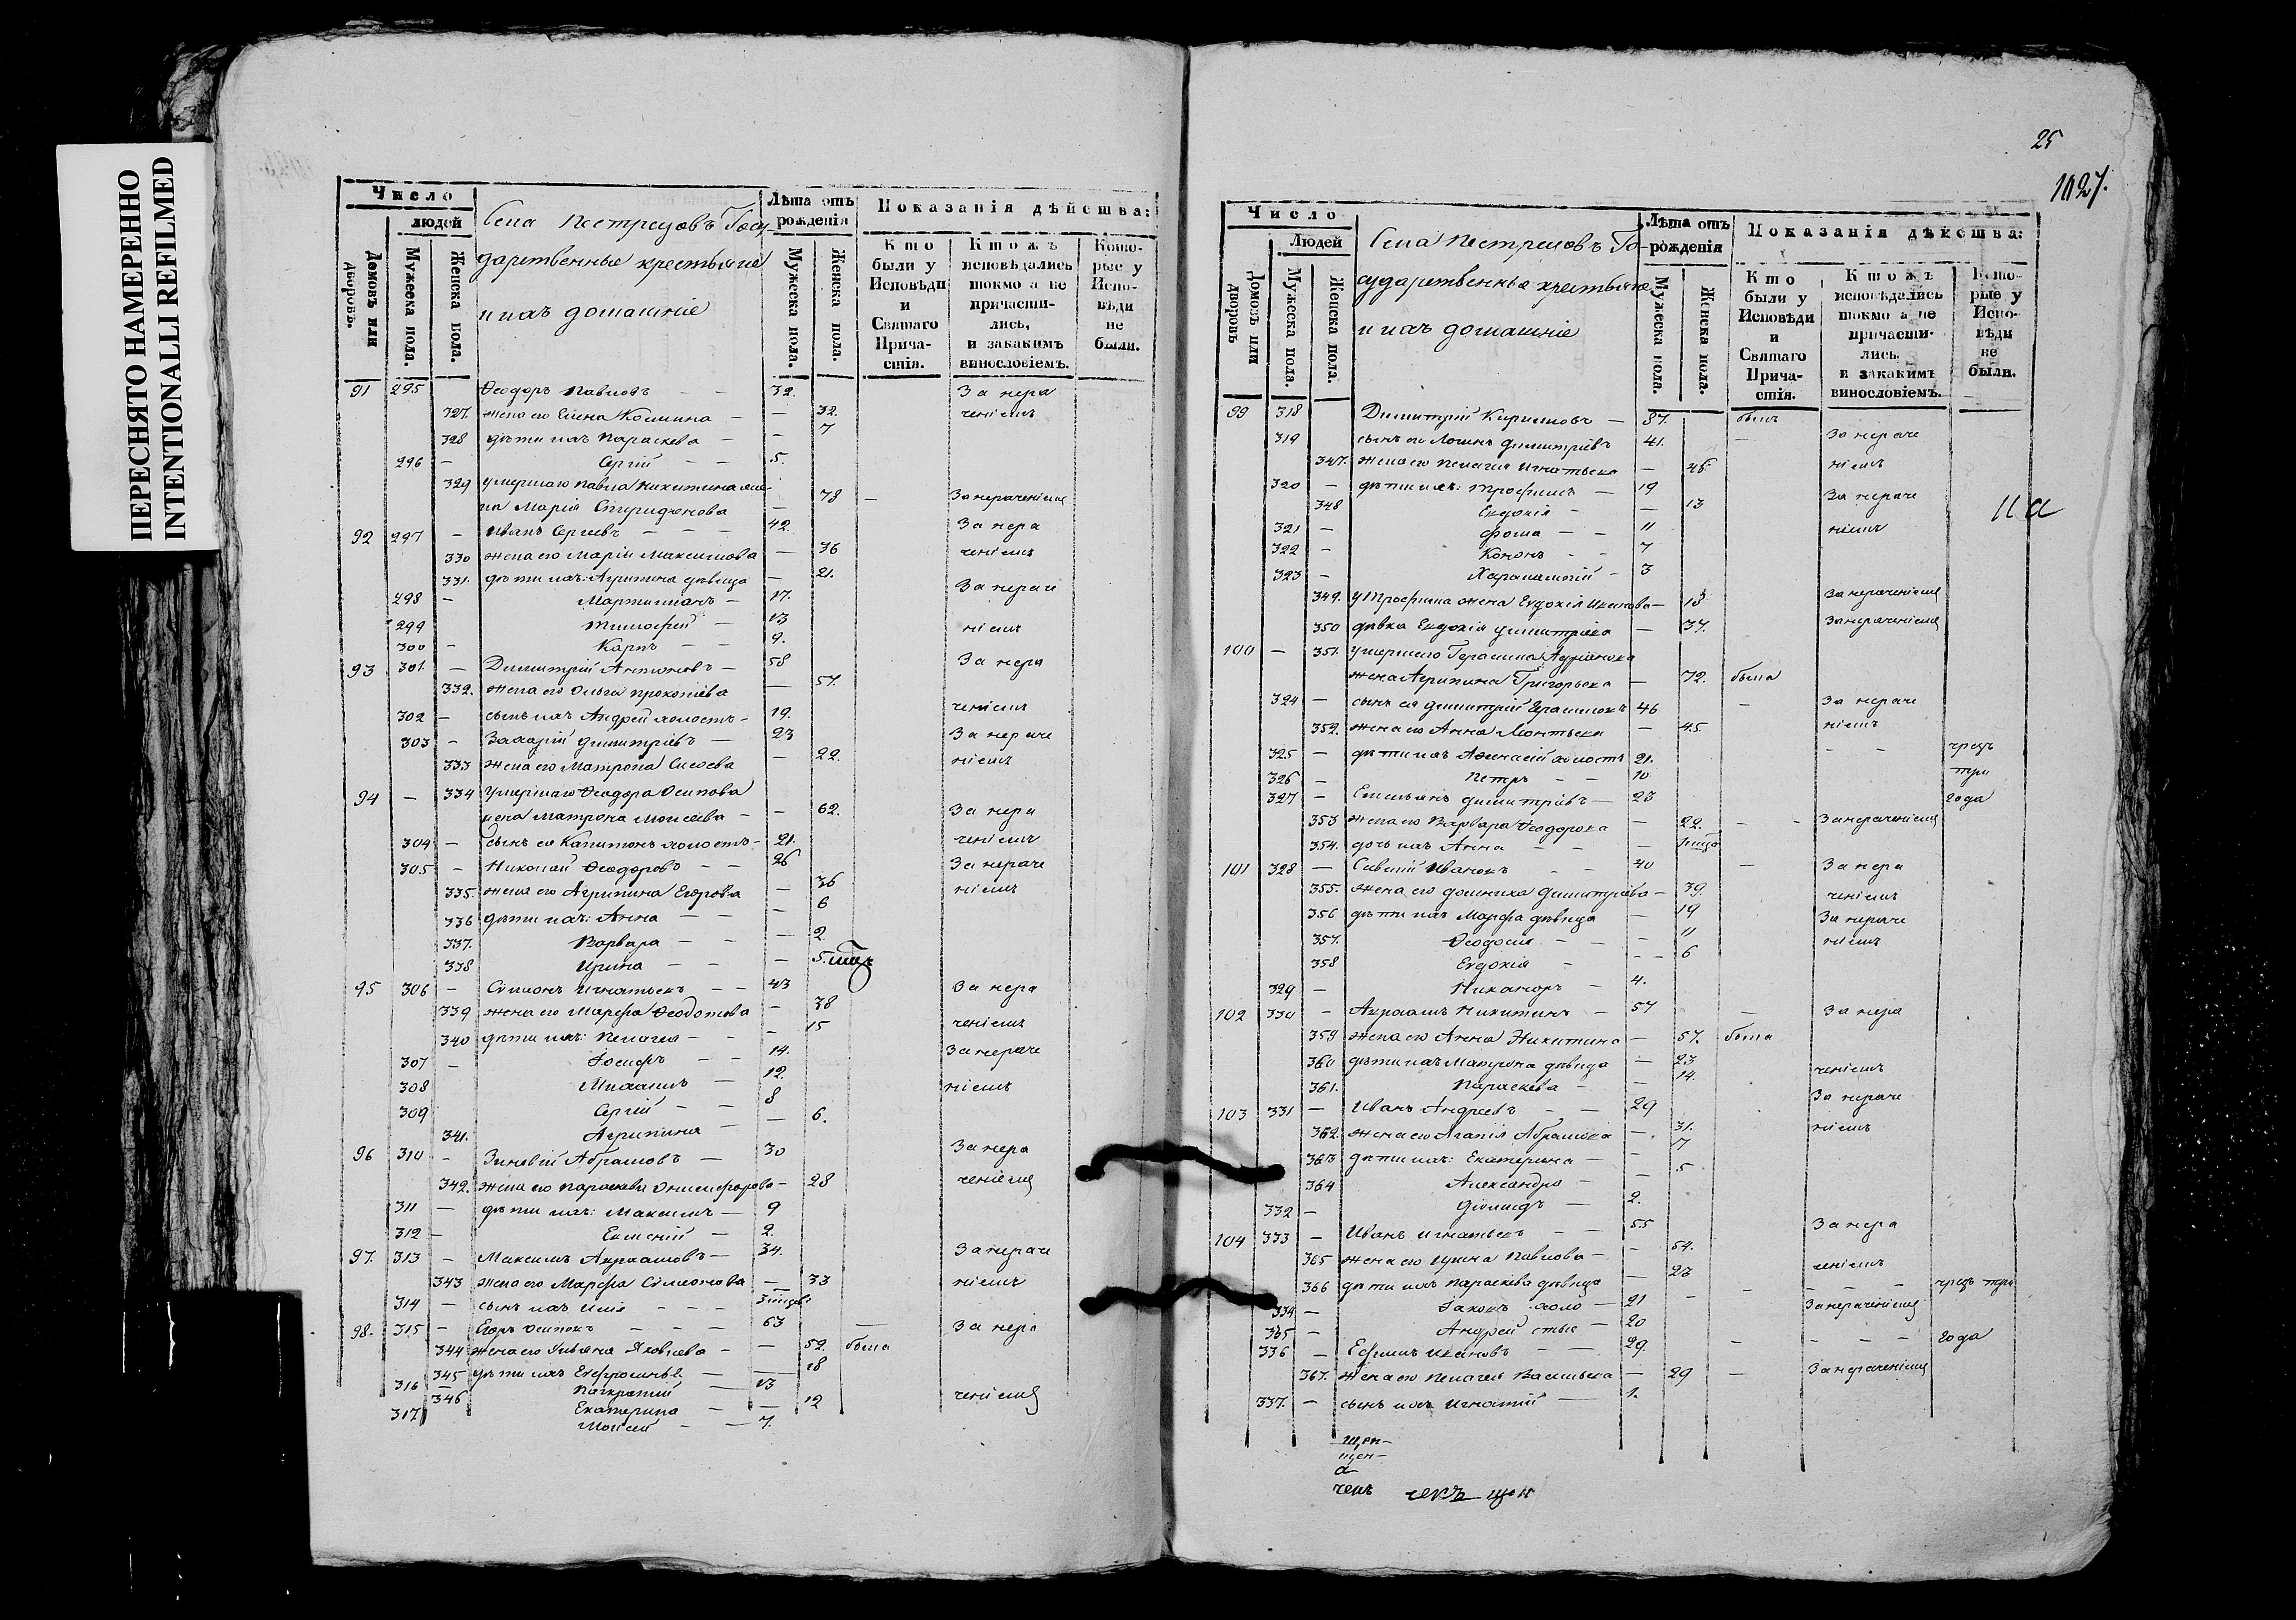 ПЕРЕСНЯТО НАМЕРЕННО
INTENTIONALLI REFILMED
Число
людей
Домовъ или дворовъ.
Мужеска пола.
Женска пола.
Села Пестрецовъ Госу-
дарственные крестьяне
и ихъ домашніе
Лѣта отъ рожденія
Мужеска пола.
Женска пола.
Показанія дѣйства:
Кто были у Исповѣди и Святаго Причастія.
Ктожъ исповѣдались токмо а не причастились, и закакимъ винословіемъ.
Которые у Исповѣди не были.
91 295 Ѳеодоръ Павловъ — 32. За нера
327. жена его Елена Космина — — 32. ченіемъ
328 дѣти ихъ Параскева — — 7
296 — Сергій — — 5.
329 умершаго Павла Никитина же-
на Марія Спиридонова — 78 — За нераченіемъ
92 297 — Иванъ Сергеевъ — — 42. За нера
330 жена его Марія Максимова — 36 ченіемъ
331. дѣти ихъ: Агрипина дѣвица — 21.
298 — Мартиніанъ — 17. За нераче
299 Тимофей — 13 ніемъ
300 — Карпъ — — 9.
93 301. — Димитрій Антоновъ — 58 За нера
332. жена его Ольга Прокопіева — 57.
302 — сынъ ихъ Андрей холостъ — 19. ченіемъ
303 — Захарій Димитріевъ — 23 За нераче
333 жена его Матрона Сисоева — 22. ніемъ
94 — 334 умершаго Ѳеодора Осипова
жена Матрона Моисеева — — 62. За нера
304 — сынъ ея Капитонъ холостъ — 21. ченіемъ
305 — Николай Ѳеодоровъ — — 26 За нераче
335. жена его Агрипина Егорова — 36 ніемъ
336 дѣти ихъ: Анна — — — 6
337. Варвара — — — 2
338 Ирина — — — 5.
95 306 — Симіонъ Игнатьевъ — — 43 За нера
339 жена его Марфа Ѳеодотова — 38
340 дѣти ихъ: Пелагея — — — 15 ченіемъ
307 — Іосифъ — — 14. За нераче
308 Михаилъ — 12. ніемъ
309 Сергій — — 8
341. Агрипина — — 6.
96 310 — Зиновій Абрамовъ — 30 За нера
342. жена его Параскева Онисифорова — 28 ченіемъ
311 — дѣти ихъ: Максимъ — 9
312 — Евмсній — 2.
97. 313 — Максимъ Авраамовъ — 34. За нераче
343 жена его Марфа Симеонова — 33 ніемъ
314 — сынъ ихъ Илія — — —
98. 315 — Егоръ Осиповъ — — — 63 — За нера
344 жена его Ульяна Яковлева — — 52. была
345 дѣти ихъ Евфросинья — — 18
316 — Панкратій — 13
346 Екатерина — — 12 ченіемъ
317 Моисей — — 7.
25
1027.
11а
Число
Людей
Домовъ или дворовъ
Мужеска пола.
Женска пола.
Села Пестрецовъ Го-
сударственные крестьяне
и ихъ домашніе
Лѣта отъ рожденія
Мужеска пола.
Женска пола.
Показанія дѣйства:
Кто были у Исповѣди и Святаго Причастія.
Ктожъ исповѣдались токмо а не причастились. и закакимъ винословіемъ.
Которые у Исповѣди не были.
99 318 Димитрій Кириловъ — 87. былъ
319 сынъ его Логинъ Димитріевъ 41. — За нераче
347. жена его Пелагія Игнатьева — 46. ніемъ
320 — дѣти ихъ: Трофимъ — 19
348 Евдокія — — 13 За нераче
321 — Фома — — 11 ніемъ
322 — Кононъ — — 7
323 — Харлампій — 3
349. у Трофима жена Евдокія Иванова — 18 За нераченіемъ
350 дѣвка Евдокія Димитріева — 37. За нераченіемъ
100 — 351. умершаго Герасима Адріанова
жена Агрипина Григорьева — 72. была
324 — сынъ ея Димитрій Герасимовъ 46 — За нераче
352. жена его Анна Леонтьева — 45. ніемъ
325 — дѣти ихъ Афанасій холостъ 21. — — чрезъ
326 — Петръ — — 10 три
327 — Емельянъ Димитріевъ — 23 года
353 жена его Варвара Ѳеодорова — 22. — — За нераченіемъ
354. дочь ихъ Анна — — —
101 328 — Савелій Ивановъ — — 40 — За нера
355. жена его Домника Димитріева — 39. ченіемъ
356 дѣти ихъ Марфа дѣвица — 19 За нераче
357. Ѳеодосія — — — 11 ніемъ
358 Евдокія — — — 6
329 — Никаноръ — 4.
102 330 — Авраамъ Никитинъ — 57 — За нера
359 жена его Анна Никитина — 57. была
360 дѣти ихъ Матрона дѣвица — 23 ченіемъ
361. Параскева — — 14.
103 331 — Иванъ Андреевъ — — 29 За нераче
362. жена его Агапія Абрамова — 31. ніемъ
363 дѣти ихъ: Екатерина — — 7
364 Александра — — 5
332 — Діомидъ — 2.
104 333 — Иванъ Игнатьевъ — — 55 За нера
365 жена его Ирина Павлова — — 54.
366 дѣти ихъ Параскева дѣвица — 23 ченіемъ
334 — Іаковъ холо — 21 — — — — — чрезъ три
335 — Андрей стые — 20 За нераченіемъ
336 — Ефимъ Ивановъ — — 29. — — — — года
367. жена его Пелагея Васильева — 29 — За нераченіемъ
337. — сынъ ихъ Игнатій — 1.
щен-
щен-
а
ченъ